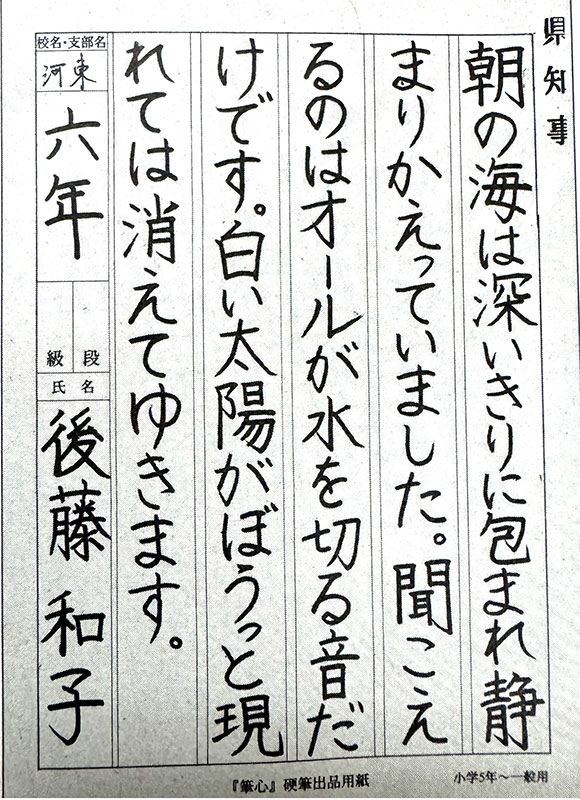 県知事
朝の海は深いきりに包まれ静
まりかえっていました。聞こえ
るのはオールが水を切る音だ
けです。白い太陽がぼうっと現
れては消えてゆきます。
校名・支部名
河東
六年
級 段
氏名
後藤 和子
『筆心』硬筆出品用紙
小学5年〜一般用